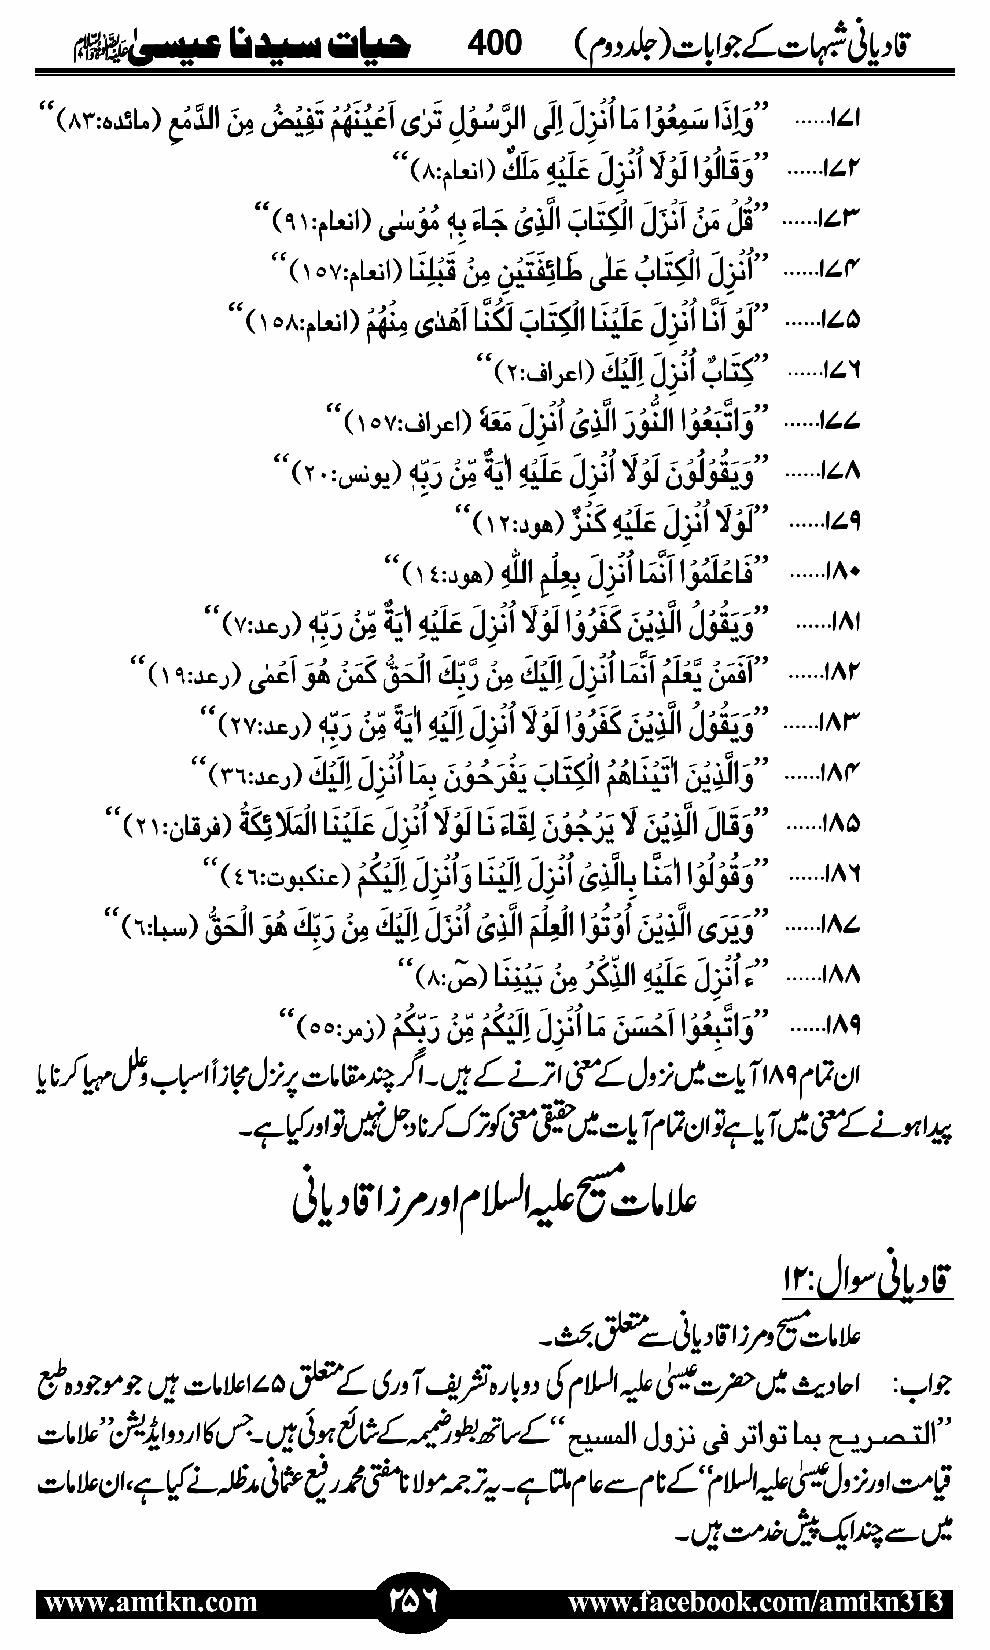 قادیانی شبہات کے جوابات (جلد دوم) 400 حیات سیدنا عیسیٰ ﷺ
۱۷۱...... ”وَاِذَا سَمِعُوْا مَا اُنْزِلَ اِلَی الرَّسُوْلِ تَرٰی اَعْیُنَهُمْ تَفِیْضُ مِنَ الدَّمْعِ (مائدہ:۸۳)“
۱۷۲...... ”وَقَالُوْا لَوْ لَا اُنْزِلَ عَلَیْهِ مَلَكٌ (انعام:۸)“
۱۷۳...... ”قُلْ مَنْ اَنْزَلَ الْكِتَابَ الَّذِیْ جَاءَ بِهٖ مُوْسٰی (انعام:۹۱)“
۱۷۴...... ”اُنْزِلَ الْكِتَابُ عَلٰی طَائِفَتَیْنِ مِنْ قَبْلِنَا (انعام:۱۵۷)“
۱۷۵...... ”لَوْ اَنَّا اُنْزِلَ عَلَیْنَا الْكِتَابَ لَكُنَّا اَهْدٰی مِنْهُمْ (انعام:۱۵۸)“
۱۷۶...... ”كِتَابٌ اُنْزِلَ اِلَیْكَ (اعراف:۲)“
۱۷۷...... ”وَاتَّبَعُوْا النُّوْرَ الَّذِیْ اُنْزِلَ مَعَهٗ (اعراف:۱۵۷)“
۱۷۸...... ”وَیَقُوْلُوْنَ لَوْ لَا اُنْزِلَ عَلَیْهِ اٰیَةٌ مِّنْ رَبِّهٖ (یونس:۲۰)“
۱۷۹...... ”لَوْ لَا اُنْزِلَ عَلَیْهِ كَنْزٌ (ھود:۱۲)“
۱۸۰...... ”فَاعْلَمُوْا اَنَّمَا اُنْزِلَ بِعِلْمِ اللهِ (ھود:۱٤)“
۱۸۱...... ”وَیَقُوْلُ الَّذِیْنَ كَفَرُوْا لَوْ لَا اُنْزِلَ عَلَیْهِ اٰیَةٌ مِّنْ رَبِّهٖ (رعد:۷)“
۱۸۲...... ”اَفَمَنْ یَّعْلَمُ اَنَّمَا اُنْزِلَ اِلَیْكَ مِنْ رَّبِّكَ الْحَقُّ كَمَنْ هُوَ اَعْمٰی (رعد:۱۹)“
۱۸۳...... ”وَیَقُوْلُ الَّذِیْنَ كَفَرُوْا لَوْ لَا اُنْزِلَ اِلَیْهِ اٰیَةً مِّنْ رَبِّهٖ (رعد:۲۷)“
۱۸۴...... ”وَالَّذِیْنَ اٰتَیْنَاهُمُ الْكِتَابَ یَفْرَحُوْنَ بِمَا اُنْزِلَ اِلَیْكَ (رعد:۳٦)“
۱۸۵...... ”وَقَالَ الَّذِیْنَ لَا یَرْجُوْنَ لِقَاءَ نَا لَوْ لَا اُنْزِلَ عَلَیْنَا الْمَلَائِكَةُ (فرقان:۲۱)“
۱۸۶...... ”وَقُوْلُوْا اٰمَنَّا بِالَّذِیْ اُنْزِلَ اِلَیْنَا وَاُنْزِلَ اِلَیْكُمْ (عنکبوت:٤٦)“
۱۸۷...... ”وَیَرَی الَّذِیْنَ اُوْتُوْا الْعِلْمَ الَّذِیْ اُنْزَلَ اِلَیْكَ مِنْ رَبِّكَ هُوَ الْحَقُّ (سبا:٦)“
۱۸۸...... ”ءَ اُنْزِلَ عَلَیْهِ الذِّكْرُ مِنْ بَیْنِنَا (صٓ:۸)“
۱۸۹...... ”وَاتَّبِعُوْا اَحْسَنَ مَا اُنْزِلَ اِلَیْكُمْ مِّنْ رَبِّكُمْ (زمر:۵۵)“
ان تمام ۱۸۹ آیات میں نزول کے معنی اترنے کے ہیں۔ اگر چند مقامات پر نزل مجازاً اسباب وعلل مہیا کرنا یا
پیدا ہونے کے معنی میں آیا ہے تو ان تمام آیات میں حقیقی معنی کو ترک کرنا دجل نہیں تو اور کیا ہے۔
علامات مسیح علیہ السلام اور مرزا قادیانی
قادیانی سوال:۱۲
علامات مسیح ومرزا قادیانی سے متعلق بحث۔
جواب: احادیث میں حضرت عیسیٰ علیہ السلام کی دوبارہ تشریف آوری کے متعلق ۱۷۵ علامات ہیں جو موجودہ طبع
”التصریح بما تواتر فی نزول المسیح“ کے ساتھ بطور ضمیمہ کے شائع ہوئی ہیں۔ جس کا اردو ایڈیشن ”علامات
قیامت اور نزول عیسیٰ علیہ السلام“ کے نام سے عام ملتا ہے۔ یہ ترجمہ مولانا مفتی محمد رفیع عثمانی مدظلہ نے کیا ہے، ان علامات
میں سے چند ایک پیش خدمت ہیں۔
www.amtkn.com ۲۵۶ www.facebook.com/amtkn313